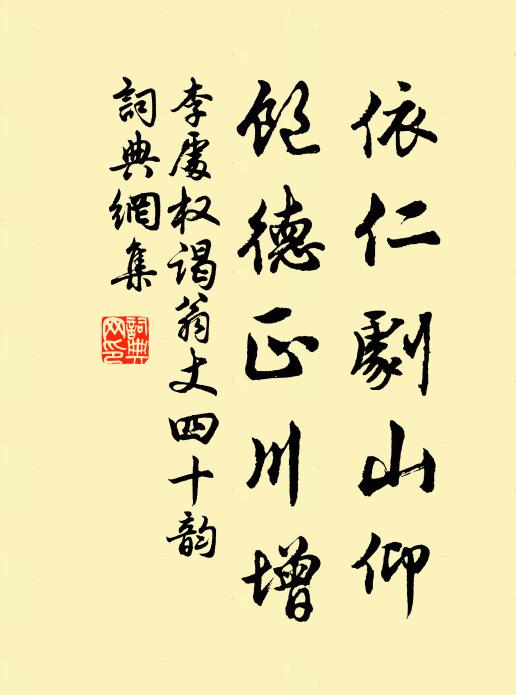 依仁劇山仰
飽德正川增
李處权谒翁丈四十韵
詞典網集
詞典
网印